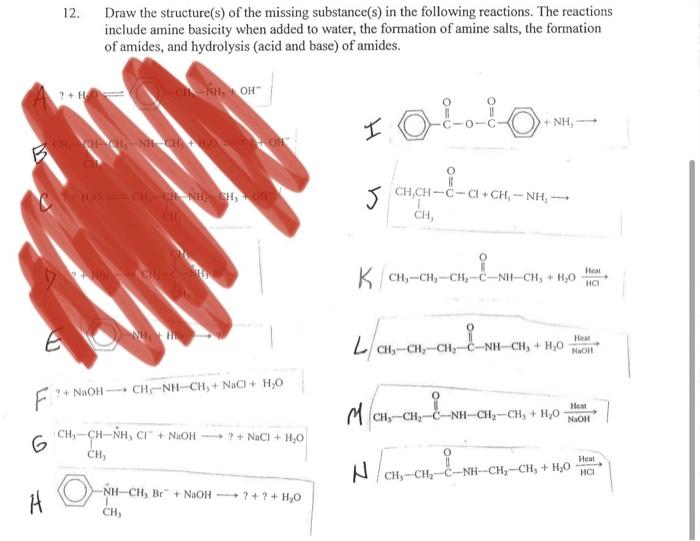 12. Draw the structure(s) of the missing substance(s) in the following reactions. The reactions
include amine basicity when added to water, the formation of amine salts, the formation
of amides, and hydrolysis (acid and base) of amides.
A ? + H₂O ⇌ CH₂—NH₃ + OH⁻
B CH₃—CH—CH₂—NH—CH₃ + H₂O ⇌ ? + OH⁻
CH₃
C ? + H₂O ⇌ CH₃—CH—NH₂—CH₃ + OH⁻
CH₃
D ? + HBr → CH₃—C—NH₃ Br⁻
CH₃
E NH₂ + HBr → ?
F ? + NaOH → CH₃—NH—CH₃ + NaCl + H₂O
G CH₃—CH—ṄH₃ Cl⁻ + NaOH → ? + NaCl + H₂O
CH₃
H ṄH—CH₃ Br⁻ + NaOH → ? + ? + H₂O
CH₃
I O O
C—O—C + NH₃ →
J O
CH₃CH—C—Cl + CH₃—NH₂ →
CH₃
K O
CH₃—CH₂—CH₂—C—NH—CH₃ + H₂O Heat HCl →
L O
CH₃—CH₂—CH₂—C—NH—CH₃ + H₂O Heat NaOH →
M O
CH₃—CH₂—C—NH—CH₂—CH₃ + H₂O Heat NaOH →
N O
CH₃—CH₂—C—NH—CH₂—CH₃ + H₂O Heat HCl →